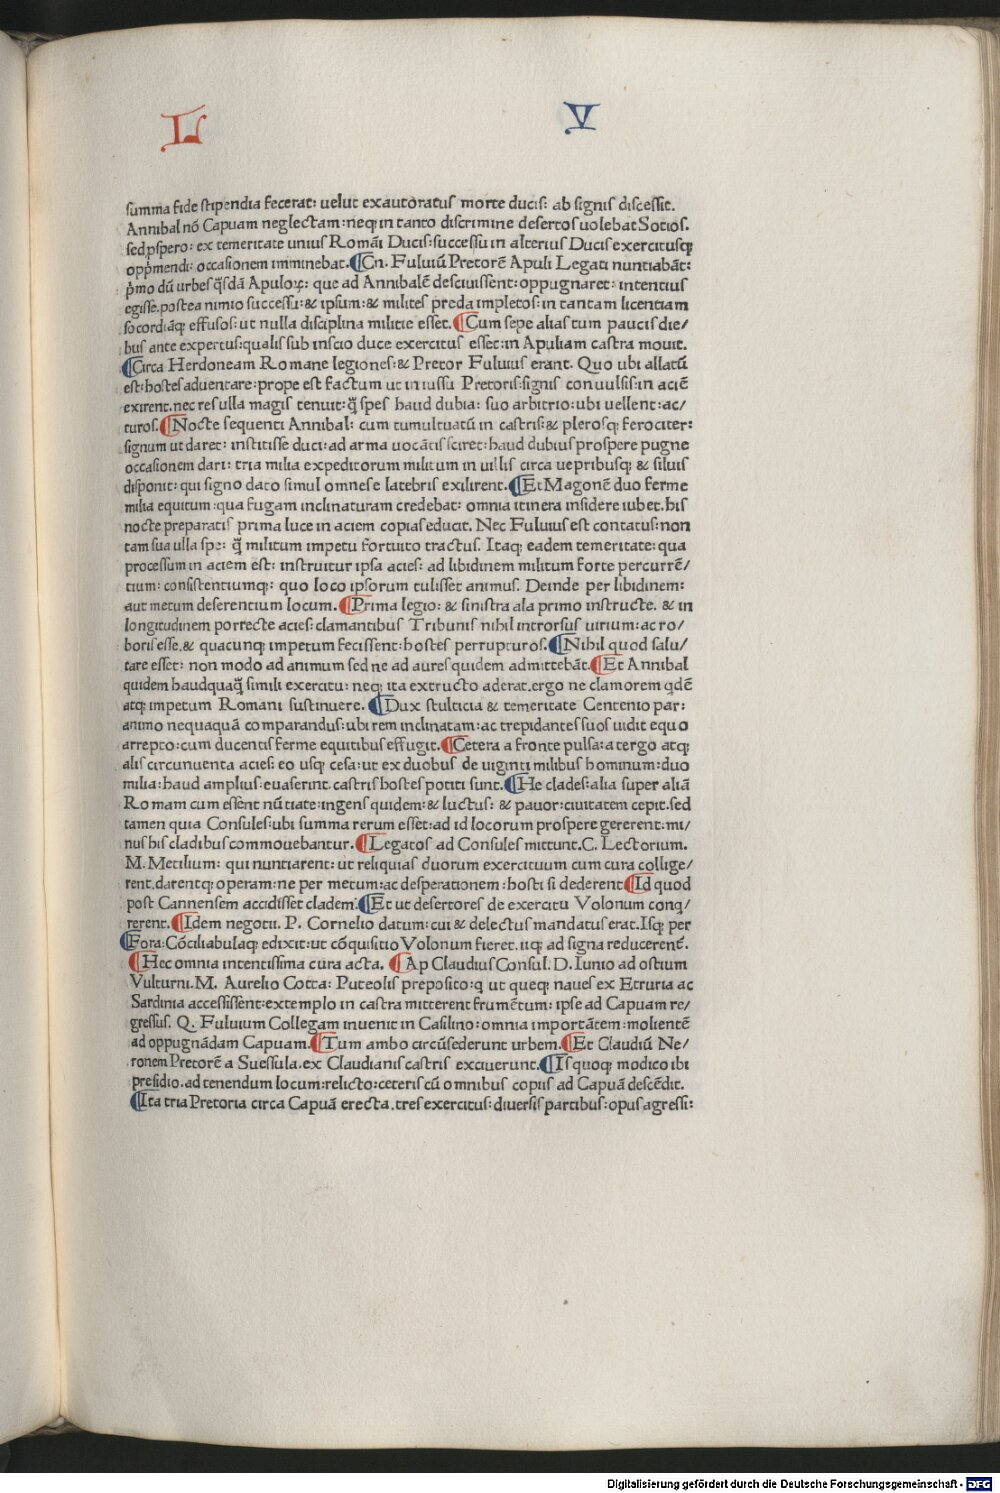 L V
summa fide stipendia fecerat: uelut exautoratus morte ducis: ab signis discessit.
Annibal nō Capuam neglectam: neq; in tanto discrimine desertos uolebat Sotios.
sed ꝓspero: ex temeritate unius Romāi Ducis: successu in alterius Ducis exercitusq;
opp̄mendi: occasionem imminebat. ¶Cn. Fuluiū Pretorē Apuli Legati nuntiabāt:
p̄mo dū urbes q̄sdā Apuloꝝ: que ad Annibalē desciuissent: oppugnaret: intentius
egisse. postea nimio successu: & ipsum: & milites preda impletos: in tantam licentiam
socordiāq; effusos: ut nulla disciplina militie esset. ¶Cum sepe alias tum paucis die/
bus ante expertus: qualis sub inscio duce exercitus esset: in Apuliam castra mouit.
¶Circa Herdoneam Romane legiones: & Pretor Fuluius erant. Quo ubi allatū
est: hostes aduentare: prope est factum ut iniussu Pretoris: signis conuulsis: in aciē
exirent. nec res ulla magis tenuit: q̄ spes haud dubia: suo arbitrio: ubi uellent: ac/
turos. ¶Nocte sequenti Annibal: cum tumultuatū in castris: & plerosq; ferociter:
signum ut daret: institisse duci: ad arma uocātis sciret: haud dubius prospere pugne
occasionem dari: tria milia expeditorum militum in uillis circa uepribusq; & siluis
disponit: qui signo dato simul omnes e latebris exilirent. ¶Et Magonē duo ferme
milia equitum: qua fugam inclinaturam credebat: omnia itinera insidere iubet. his
nocte preparatis prima luce in aciem copias educit. Nec Fuluius est contatus: non
tam sua ulla spe: q̄ militum impetu fortuito tractus. Itaq; eadem temeritate: qua
processum in aciem est: instruitur ipsa acies: ad libidinem militum forte percurrē/
tium: consistentiumq;: quo loco ipsorum tulisset animus. Deinde per libidinem:
aut metum deserentium locum. ¶Prima legio: & sinistra ala primo instructe. & in
longitudinem porrecte acies: clamantibus Tribunis nihil introrsus uirium: ac ro/
boris esse. & quacunq; impetum fecissent: hostes perrupturos. ¶Nihil quod salu/
tare esset: non modo ad animum sed ne ad aures quidem admittebāt. ¶Et Annibal
quidem haudquaq̄ simili exercitu: neq; ita extructo aderat. ergo ne clamorem qdē
atq; impetum Romani sustinuere. ¶Dux stulticia & temeritate Centenio par:
animo nequaquā comparandus: ubi rem inclinatam: ac trepidantes suos uidit equo
arrepto: cum ducentis ferme equitibus effugit. ¶Cetera a fronte pulsa: a tergo atq;
alis circunuenta acies: eo usq; cesa: ut ex duobus de uiginti milibus hominum: duo
milia: haud amplius: euaserint. castris hostes potiti sunt. ¶He clades: alia super aliā
Romam cum essent nūtiate: ingens quidem: & luctus: & pauor: ciuitatem cepit. sed
tamen quia Consules: ubi summa rerum esset: ad id locorum prospere gererent: mi/
nus his cladibus commouebantur. ¶Legatos ad Consules mittunt. C. Lectorium.
M. Metilium: qui nuntiarent: ut reliquias duorum exercituum cum cura collige/
rent. darentq; operam: ne per metum: ac desperationem: hosti si dederent ¶Id quod
post Cannensem accidisset cladem. ¶Et ut desertores de exercitu Volonum conq/
rerent. ¶Idem negotii. P. Cornelio datum: cui & delectus mandatus erat. Isq; per
¶Fora: Cōciliabulaq; edixit: ut cōquisitio Volonum fieret. iiq; ad signa reducerent̄.
¶Hec omnia intentissima cura acta. ¶Ap Claudius Consul. D. Iunio ad ostium
Vulturni. M. Aurelio Cotta: Puteolis preposito: q ut queq; naues ex Etruria ac
Sardinia accessissent: extemplo in castra mitterent frumētum: ipse ad Capuam re/
gressus. Q. Fuluium Collegam inuenit in Casilino: omnia importātem: molientē
ad oppugnādam Capuam. ¶Tum ambo circūsederunt urbem. ¶Et Claudiū Ne/
ronem Pretorē a Suessula. ex Claudianis castris exciuerunt. ¶Is quoq; modico ibi
presidio. ad tenendum locum: relicto: ceteris cū omnibus copiis ad Capuā descēdit.
¶Ita tria Pretoria circa Capuā erecta. tres exercitus: diuersis partibus: opus agressi:
Digitalisierung gefördert durch die Deutsche Forschungsgemeinschaft - DFG